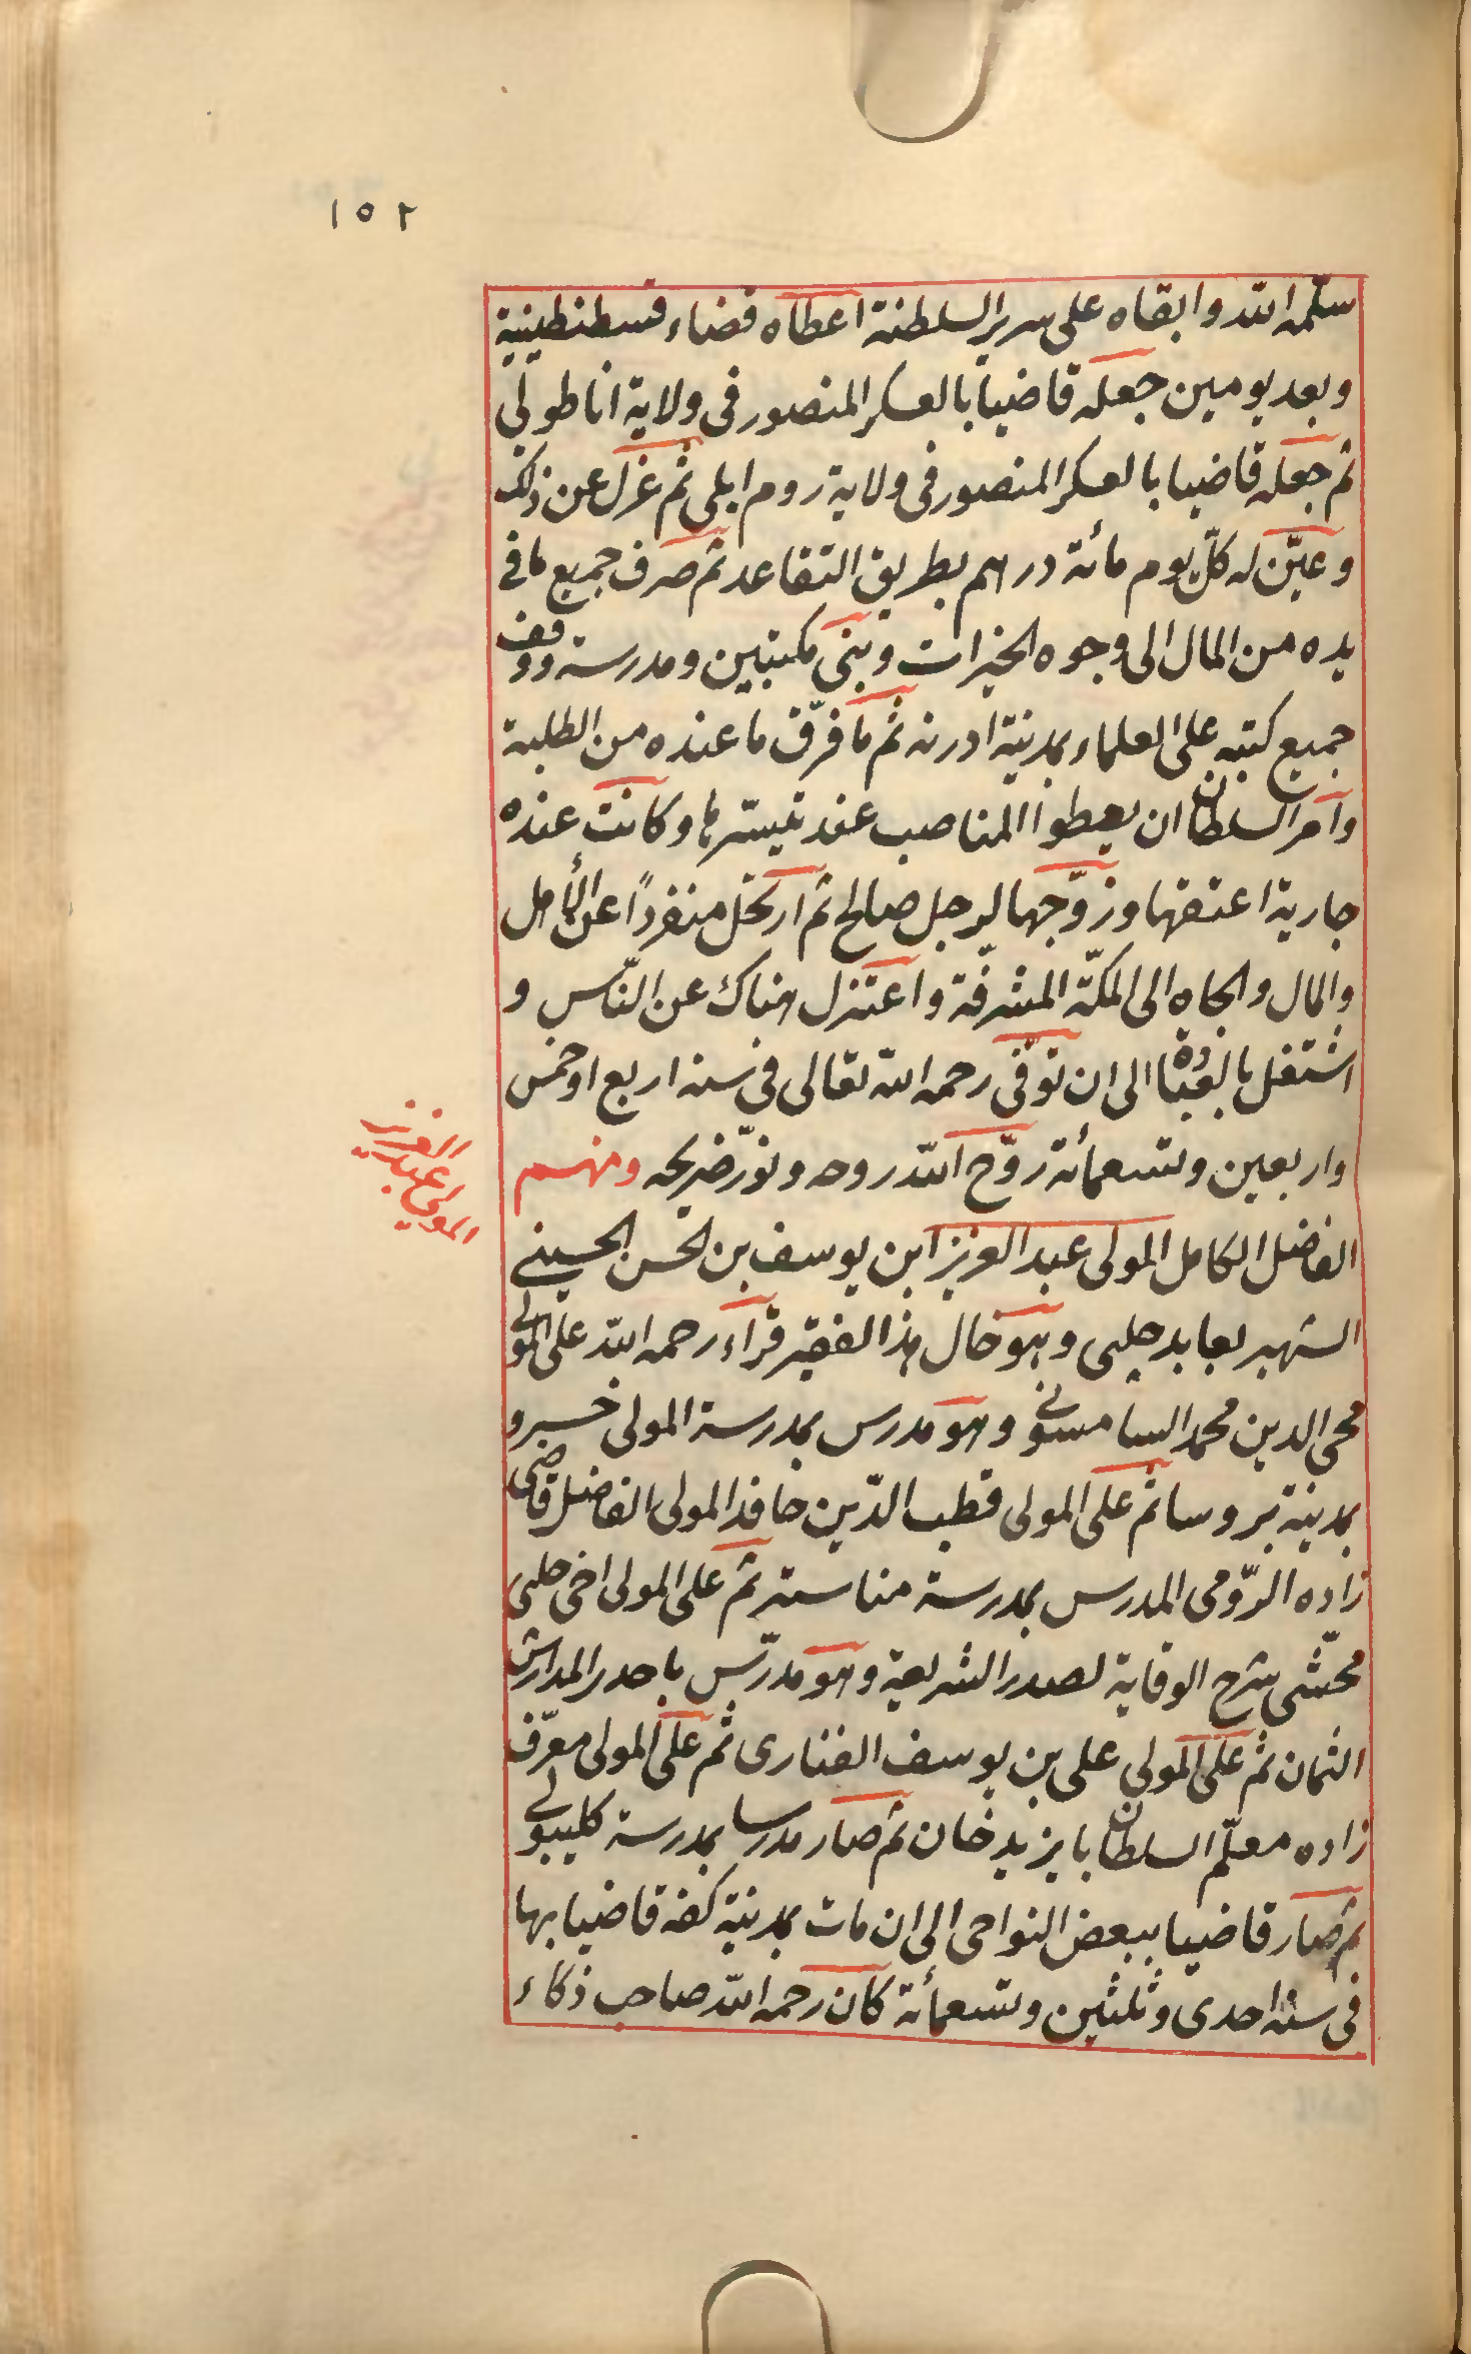 ١٥٢
سلّمه الله وابقاه على سرير السلطنة اعطاه قضاء قسطنطينية
وبعد يومين جعله قاضيا بالعسكر المنصور فى ولاية اناطولى
ثم جعله قاضيا بالعسكر المنصور فى ولاية روم ايلى ثم عزل عن ذلك
وعيّن له كلّ يوم مائة دراهم بطريق التقاعد ثم صرف جميع ما فى
يده من المال الى وجوه الخيرات وبنى مكتبين ومدرسة ووقف
جميع كتبه على العلماء بمدينة ادرنه ثم ما فرّق ما عنده من الطلبة
وامر السلطان ان يعطوا المناصب عند تيسّرها وكانت عنده
جارية اعتقها وزوّجها لرجل صالح ثم ارتحل منفردًا عن الأهل
والمال والجاه الى المكّة المشرفة واعتزل هناك عن النّاس و
اشتغل بالعبادة الى ان توفّى رحمه الله تعالى فى سنة اربع او خمس
واربعين وتسعمائة روّح الله روحه ونوّر ضريحه ومنهم
المولى عبد العزيز
الفاضل الكامل المولى عبد العزيز ابن يوسف بن الحسن الحسينى
الشهير بعابد جلبى وهو خال هذا الفقير قرآء رحمه الله على المولى
محى الدين محمد السامسونى وهو مدرس بمدرسة المولى خسرو
بمدينة بروسا ثم على المولى قطب الدّين حافد المولى الفاضل قاضى
زاده الرّومى المدرس بمدرسة مناستر ثم على المولى اخى جلبى
محشّى شرح الوقاية لصدر الشريعة وهو مدرّس باحدى المدارس
الثمان ثم على المولى على بن يوسف الفنارى ثم على المولى معرّف
زاده معلّم السلطان بايزيد خان ثم صار مدرسا بمدرسة كليبولى
ثم صار قاضيا ببعض النواحى الى ان مات بمدينة كفه قاضيا بها
فى سنة احدى وثلثين وتسعمائة كان رحمه الله صاحب ذكاء